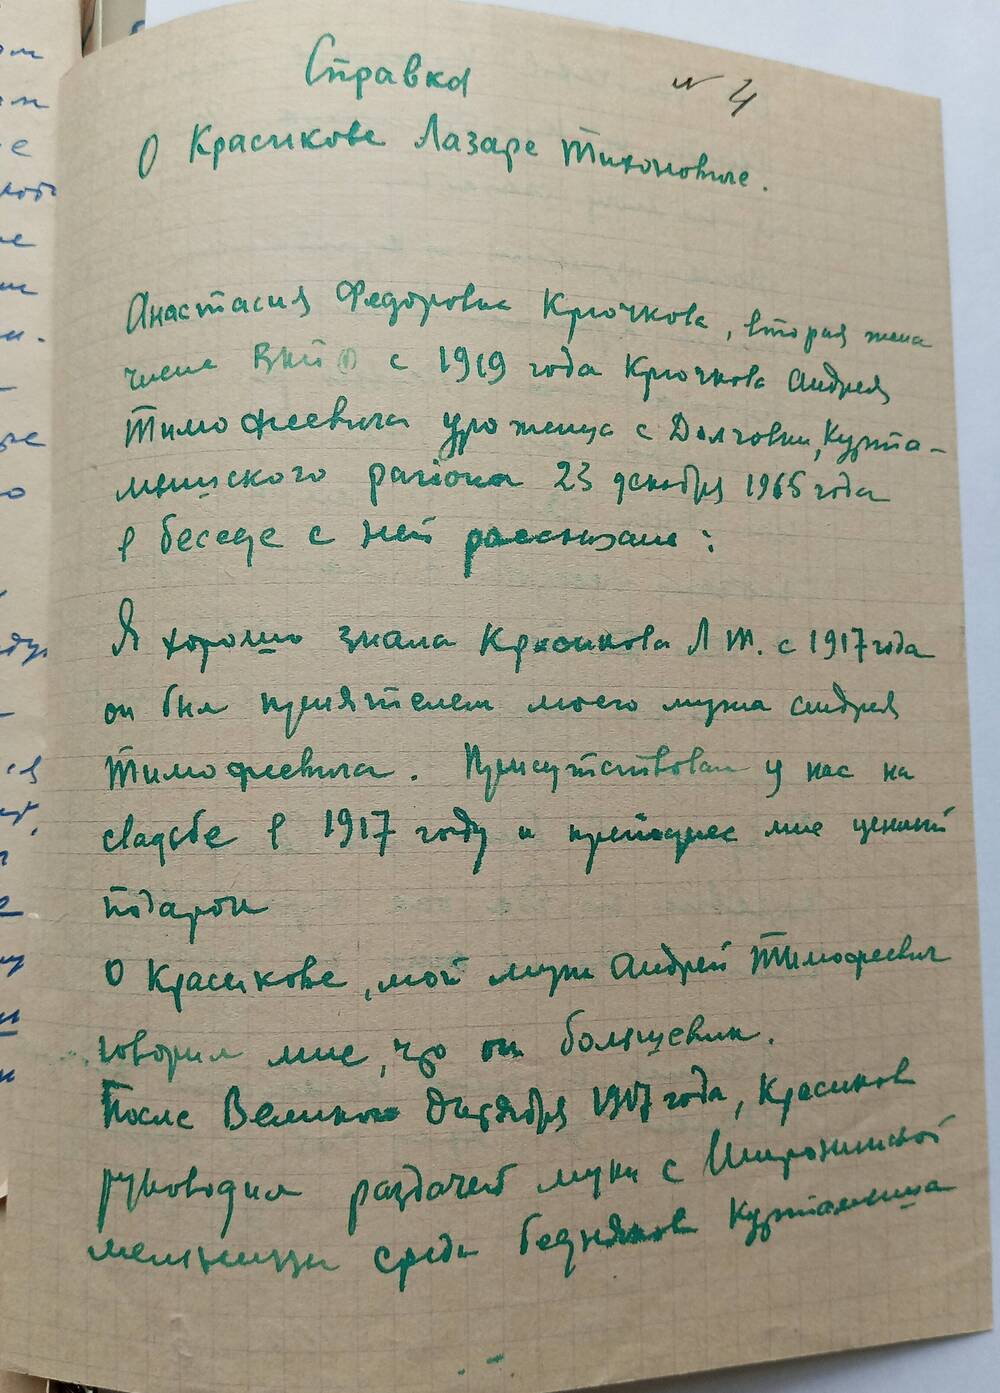 Справка
№ 4
О Красикове Лазаре Тихоновиче.
Анастасия Федоровна Крючкова, вторая жена
члена ВКП(б) с 1919 года Крючкова Андрея
Тимофеевича уроженца с Долговки, Курта-
мышского района 23 декабря 1965 года
в беседе с ней рассказала:
Я хорошо знала Красикова Л Т. с 1917 года
он был приятелем моего мужа Андрея
Тимофеевича. Присутствовал у нас на
свадьбе в 1917 году и преподнес мне ценный
подарок
О Красикове, мой муж Андрей Тимофеевич
говорил мне, что он большевик.
После Великого Октября 1917 года, Красиков
руководил раздачей муки с
мельницы среди бедняков Куртамыша